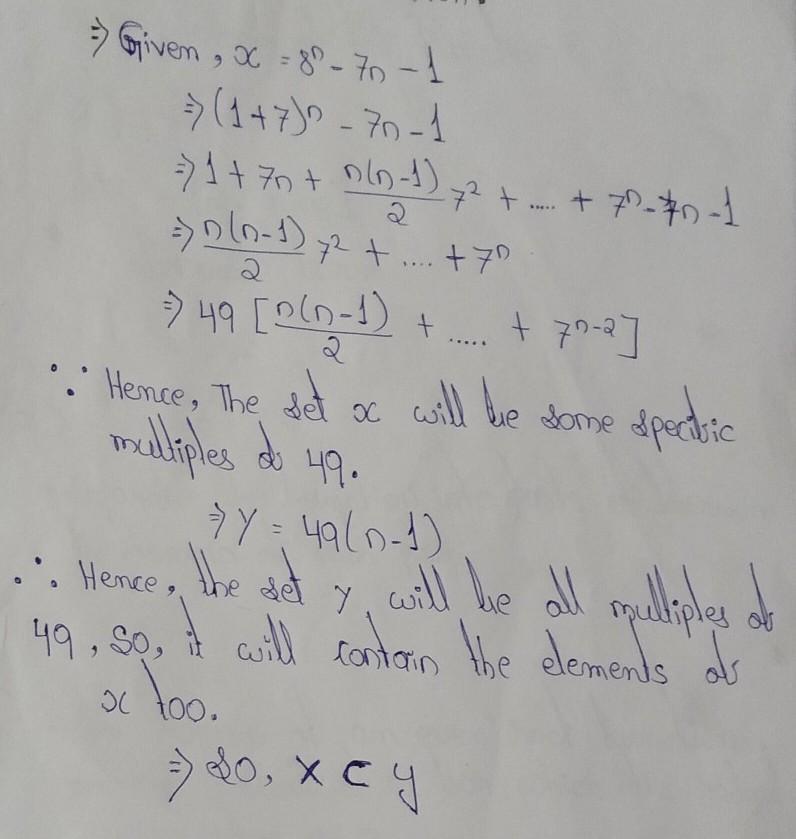 ⇒ Given, x = 8ⁿ - 7n - 1
⇒ (1+7)ⁿ - 7n - 1
⇒ 1 + 7n + n(n-1)/2 7² + ..... + 7ⁿ - 7n - 1
⇒ n(n-1)/2 7² + .... + 7ⁿ
⇒ 49 [n(n-1)/2 + ..... + 7ⁿ⁻²]
∵ Hence, The set x will be some specific
multiples of 49.
⇒ Y = 49(n-1)
∴ Hence, the set y will be all multiples of
49, So, it will contain the elements of
x too.
⇒ So, x ⊂ y